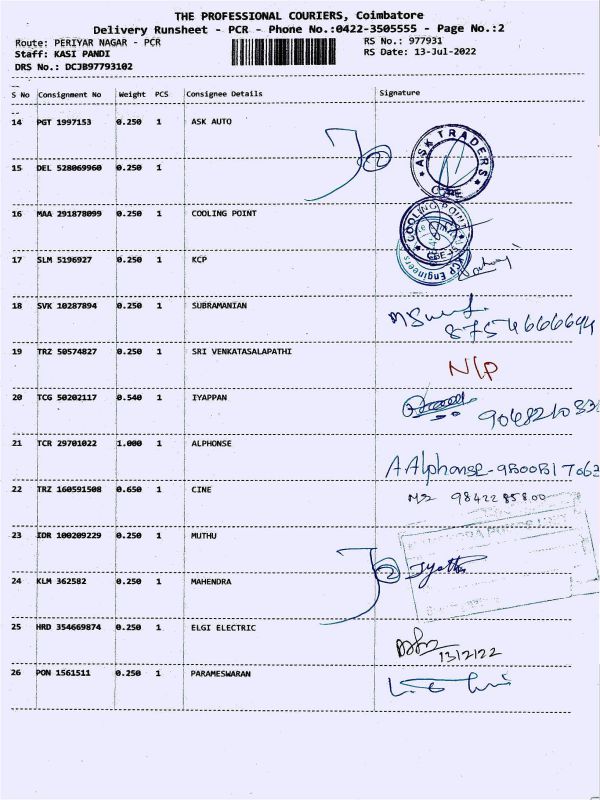 THE PROFESSIONAL COURIERS, Coimbatore
Delivery Runsheet - PCR - Phone No.:0422-3505555 - Page No.:2
Route: PERIYAR NAGAR - PCR RS No.: 977931
Staff: KASI PANDI RS Date: 13-Jul-2022
DRS No.: DCJB97793102
S No Consignment No Weight PCS Consignee Details Signature
14 PGT 1997153 0.250 1 ASK AUTO
ASK TRADERS
2
15 DEL 528069960 0.250 1
16 MAA 291878099 0.250 1 COOLING POINT
COOLING POINT
17 SLM 5196927 0.250 1 KCP
KCP Engineers
18 SVK 10287894 0.250 1 SUBRAMANIAN
8754666694
19 TRZ 50574827 0.250 1 SRI VENKATASALAPATHI
N/P
20 TCG 50202117 0.540 1 IYAPPAN
21 TCR 29701022 1.000 1 ALPHONSE
A Alphonse
22 TRZ 160591508 0.650 1 CINE
9842285800
23 IDR 100209229 0.250 1 MUTHU
2
24 KLM 362582 0.250 1 MAHENDRA
25 HRD 354669874 0.250 1 ELGI ELECTRIC
26 PON 1561511 0.250 1 PARAMESWARAN